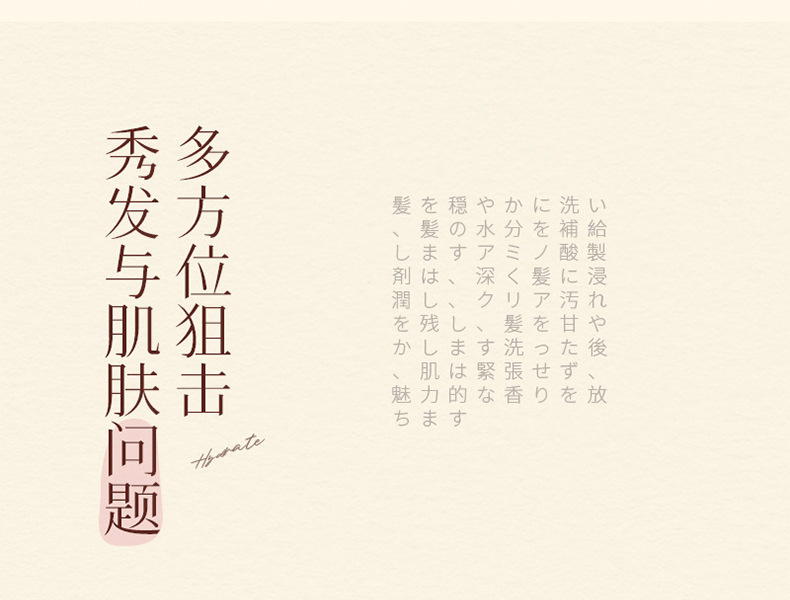 多方位狙击
秀发与肌肤问题
Hydrate
髪を穏やかに洗い
、髪の水分を補給
しますアミノ酸製
剤は、深く髪に浸
潤し、クリア汚れ
を残し、髪を甘や
かします洗った後
、肌は緊張せず、
魅力的な香りを放
ちます